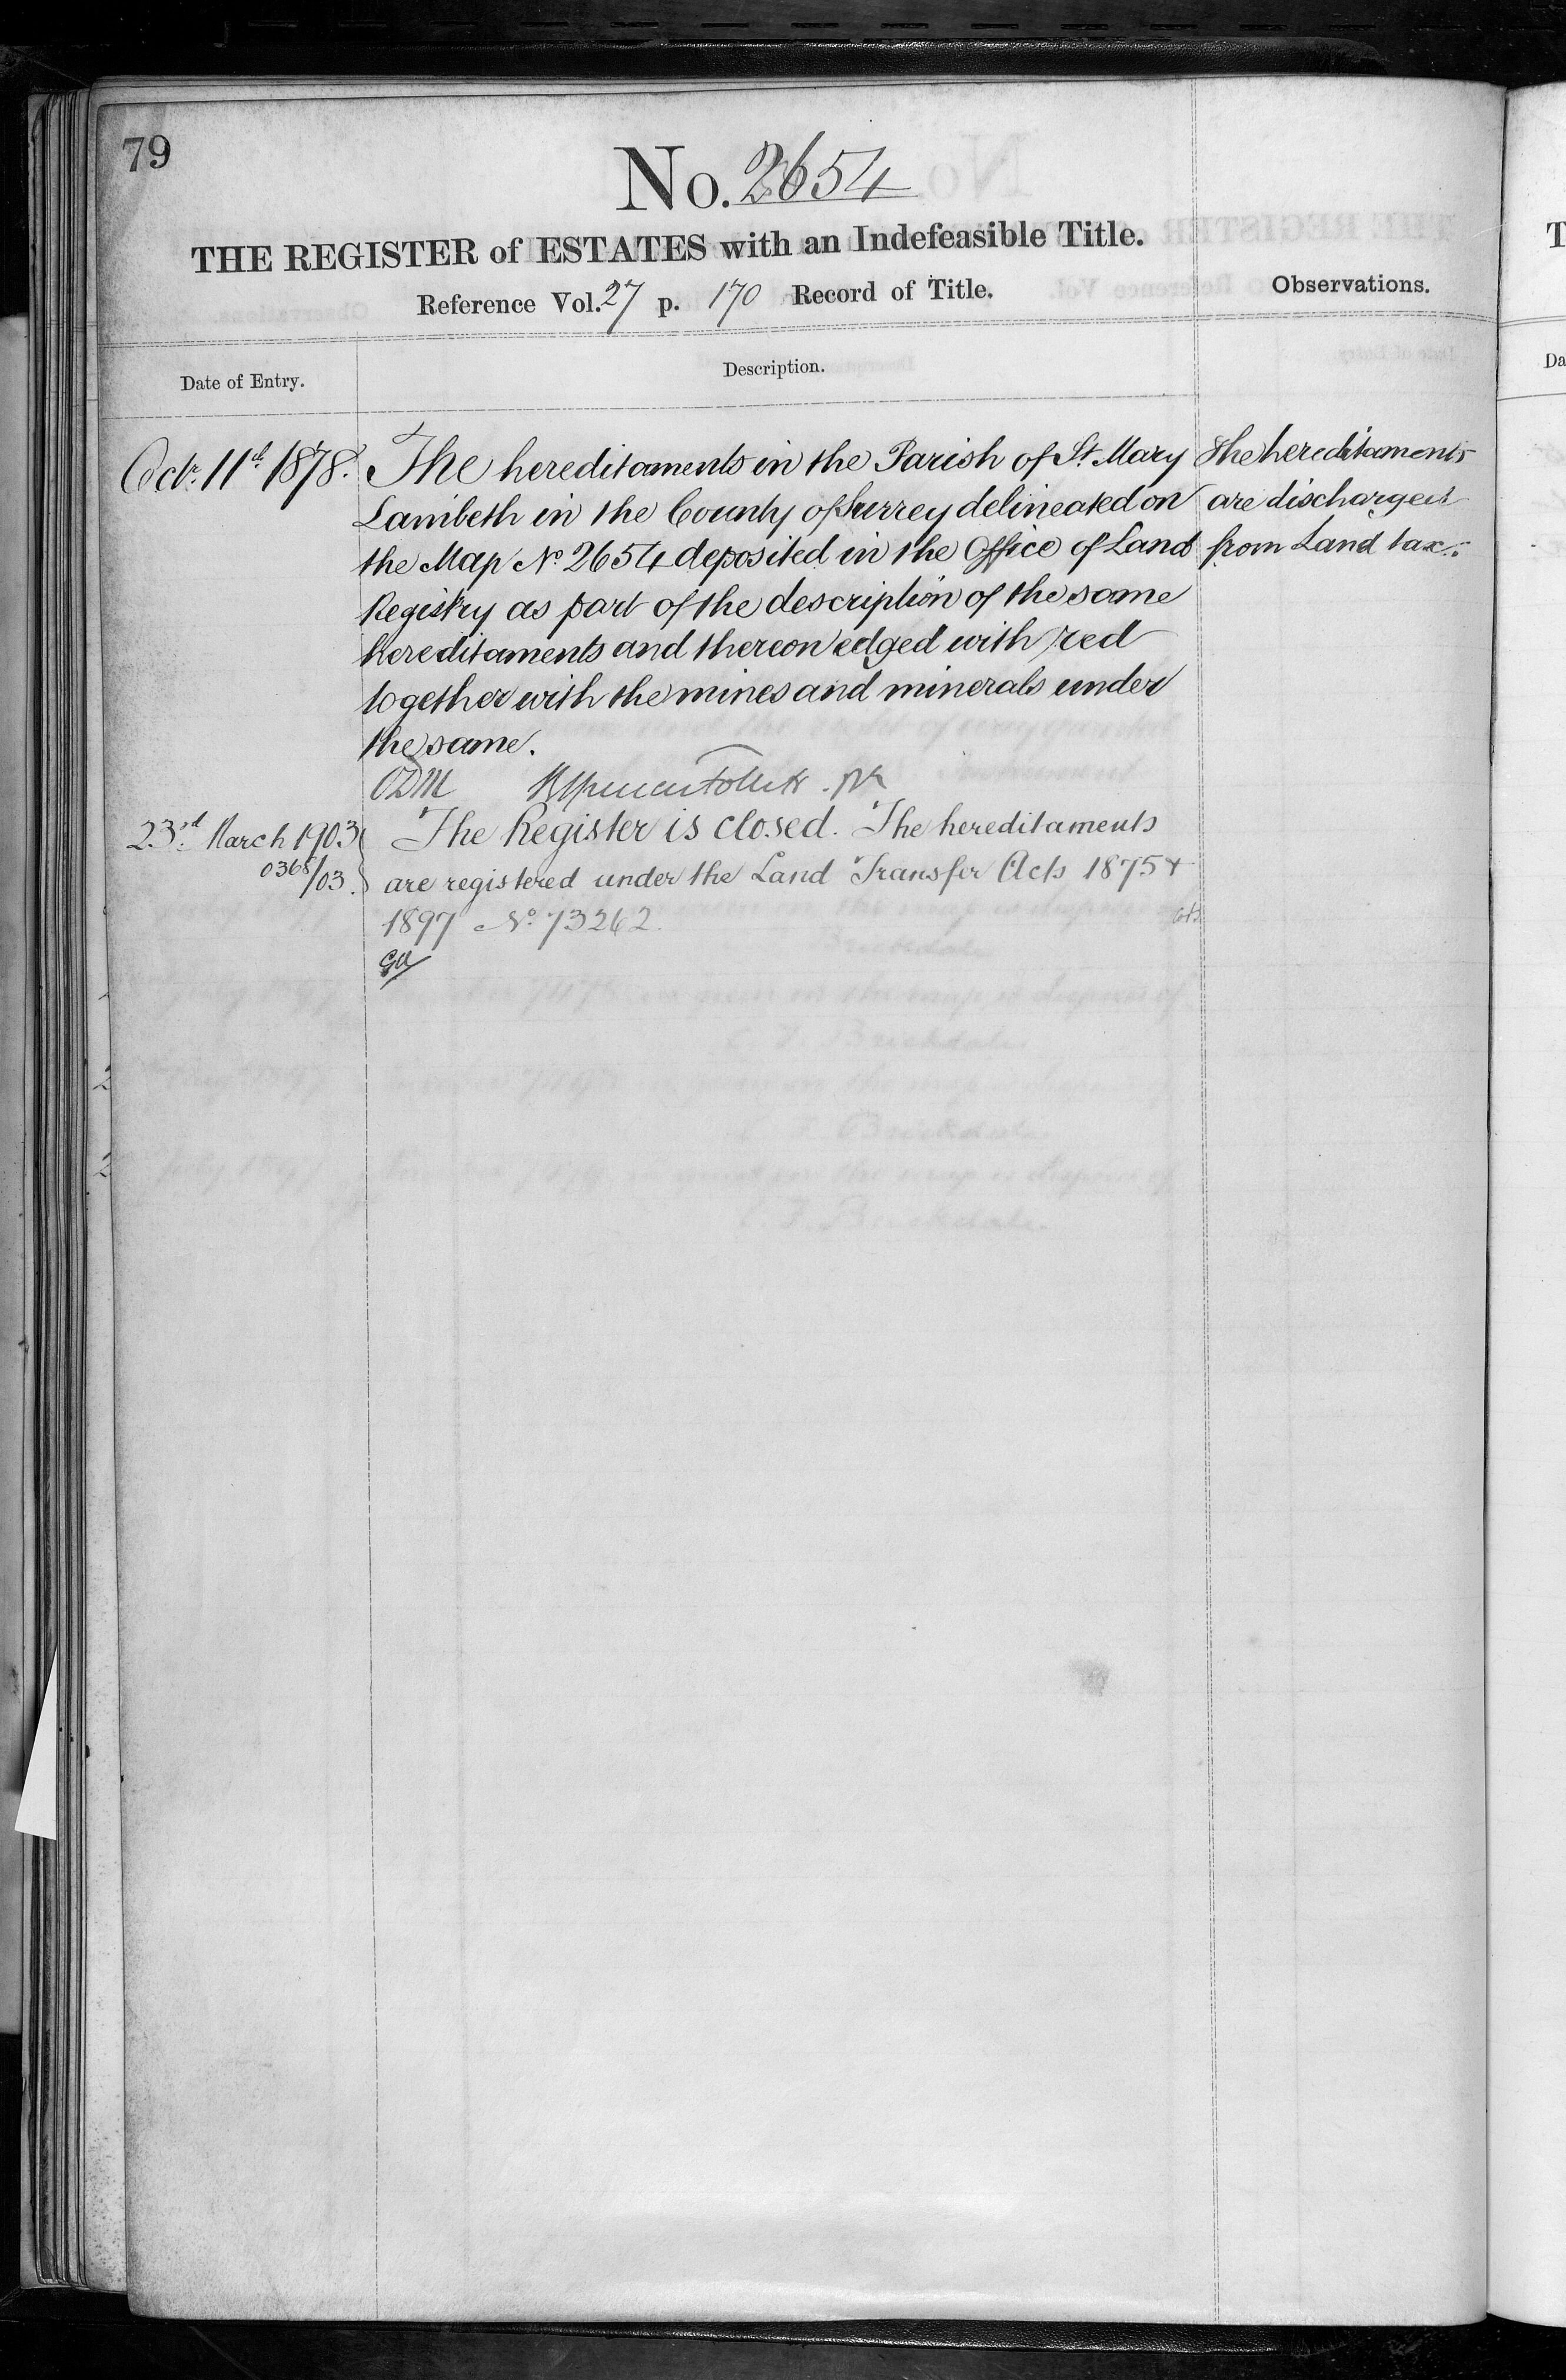 79
No. 2654
THE REGISTER of ESTATES with an Indefeasible Title.
Reference Vol. 27 p. 170 Record of Title.
Observations.
Date of Entry.
Description.
Octr. 11th 1878.
The hereditaments in the Parish of St. Mary
Lambeth in the County of Surrey delineated on
the Map No. 2654 deposited in the Office of Land
Registry as part of the description of the same
hereditaments and thereon edged with red
together with the mines and minerals under
the same.
The hereditaments
are discharged
from Land tax.
ODM
23rd. March 1903
0368/03.
The Register is closed. The hereditaments
are registered under the Land Transfer Acts 1875 &
1897 No. 73262.